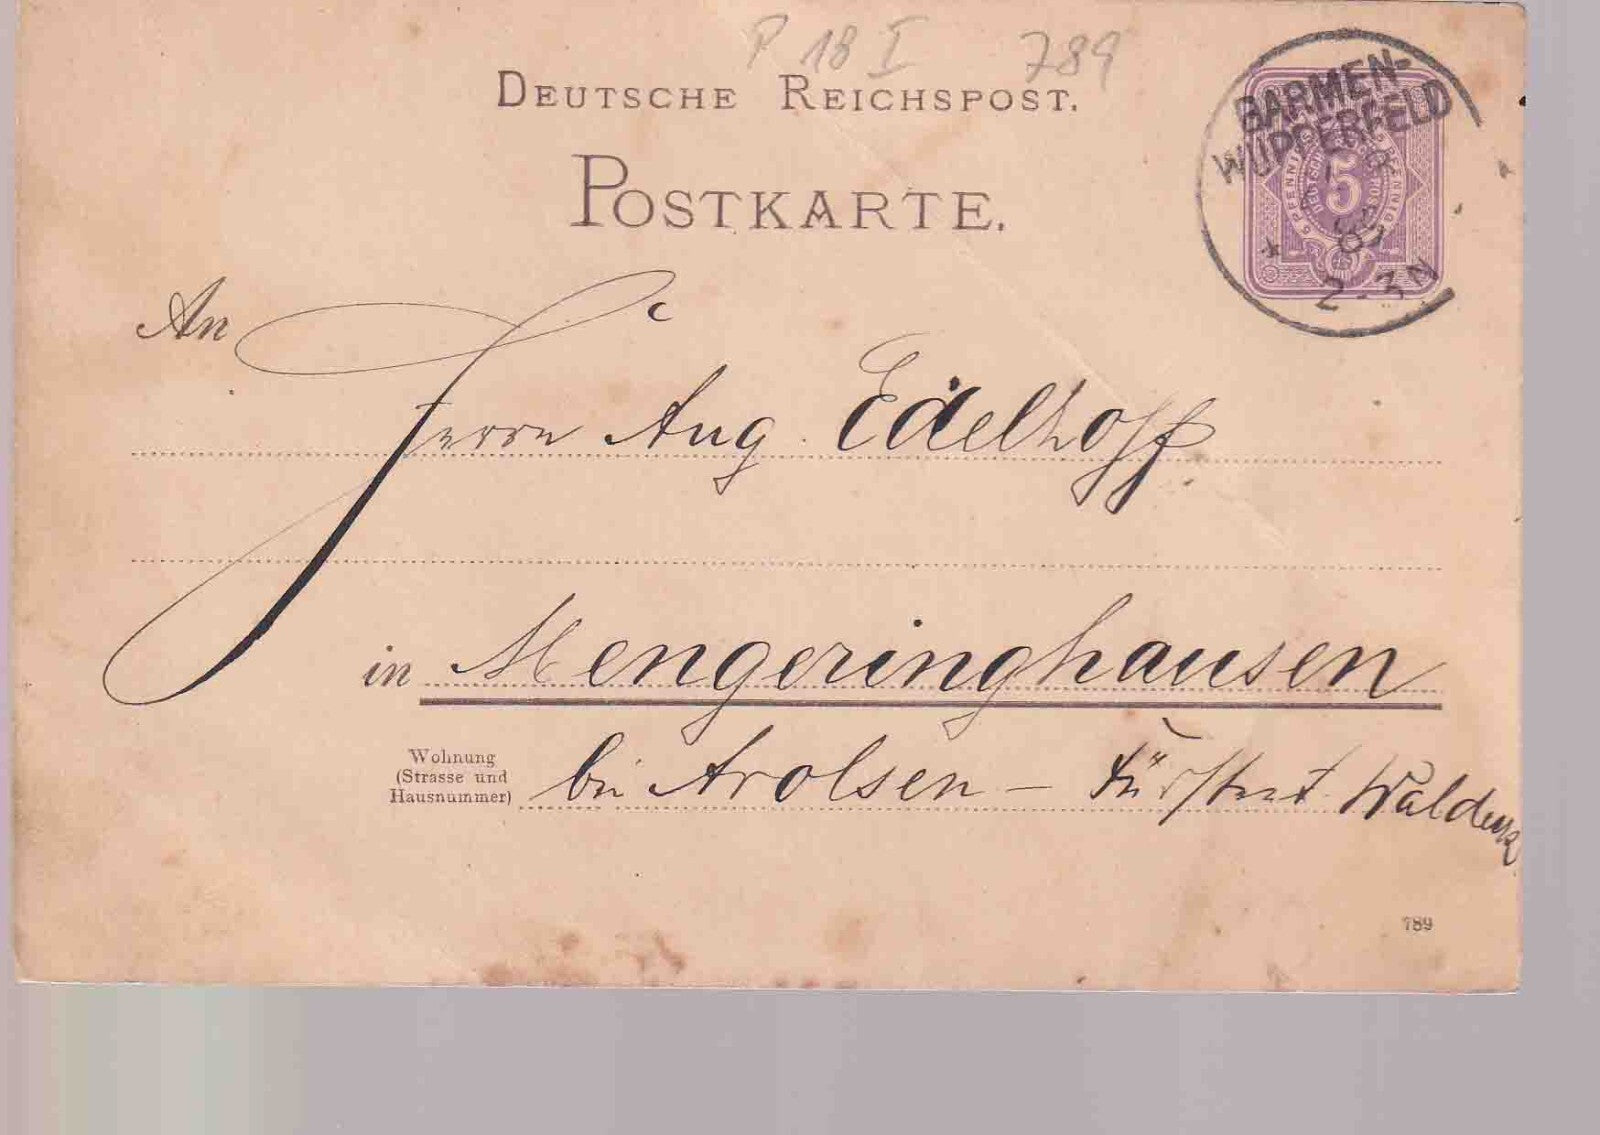 P 18 I 789
DEUTSCHE REICHSPOST.
POSTKARTE.
BARMEN-
WUPPERFELD
5
89
2-3N
An
Herrn Aug. Edelhoff
in Mengeringhausen
Wohnung
(Strasse und
Hausnummer)
bei Arolsen – Fürstent Waldeck
789